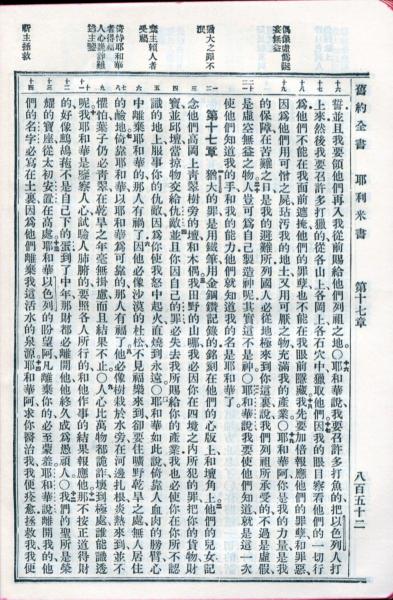 舊約全書 耶利米書 第十七章 八百五十二
誓並且我要領他們再入我從前賜給他們列祖之地〇耶和華說我要召許多打魚的把以色列人打
上來然後我要召許多打獵的從各山上各岡上各石穴中獵取他們因我的眼目察看他們的一切行
爲他們不能在我面前遮掩他們的罪孽也不能在我眼前隱藏我先要加倍報應他們的罪孽和罪惡
因爲他們用可憎之屍玷污我的地土又用可厭之物充滿我的產業〇耶和華阿你是我的力量是我
的保障在苦難之日是我的避難所列國人必從地極來到你這裏說我們列祖所承受的不過是虛假
是虛妄無益之物人豈可爲自己製造神呢其實這不是神〇耶和華說我要使他們知道就是這一次
使他們知道我的手和我的能力他們就知道我的名是耶和華了
第十七章 猶大的罪是用鐵筆用金鋼鑽記錄的銘刻在他們的心版上和壇角上他們的兒女記
念他們高岡上青翠樹旁的壇和木偶我田野的山哪我必因你在四境之內所犯的罪把你的貨物財
寶並邱壇當掠物交給仇敵並且你因自己的罪必失去我所賜給你的產業我也必使你在你所不認
識的地上服事你的仇敵因爲你使我怒中起火直燒到永遠〇耶和華如此說你靠人血肉的膀臂心
中離棄耶和華的那人有禍了因他必像沙漠的杜松不見福樂來到卻要住曠野乾旱之處無人居住
的鹼地倚靠耶和華以耶和華爲可靠的那人有福了他必像樹栽於水旁在河邊扎根炎熱來到並不
懼怕葉子仍必青翠在乾旱之年毫無掛慮而且結果不止〇人心比萬物都詭詐壞到極處誰能識透
呢我耶和華是鑒察人心試驗人肺腑的要照各人所行的和他作事的結果報應他那不按正道得財
的好像鷓鴣菢不是自己下的蛋到了中年那財都必離開他他終久成爲愚頑人〇我們的聖所是榮
耀的寶座從太初安置在高處耶和華以色列的盼望阿凡離棄你的必至蒙羞耶和華說離開我的他
們的名字必寫在土裏因爲他們離棄我這活水的泉源耶和華阿求你醫治我我便痊愈拯救我我便